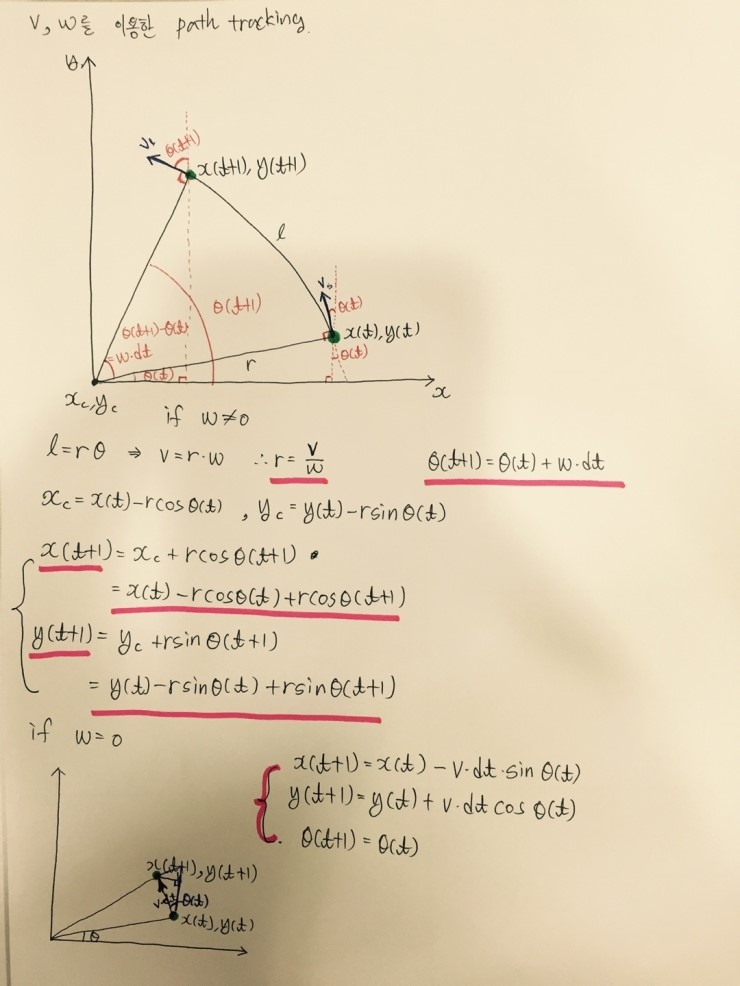 v, w를 이용한 path tracking.
y
v₁ θ(t+1)
x(t+1), y(t+1)
l
v₀ θ(t)
θ(t+1)
θ(t+1)-θ(t)
= w·dt
x(t), y(t)
θ(t)
θ(t)
r
x
x_c, y_c
if w≠0
l=rθ ⇒ v=r·w ∴ r= v/w
θ(t+1)=θ(t)+w·dt
x_c=x(t)-rcosθ(t) , y_c=y(t)-rsinθ(t)
x(t+1)= x_c+rcosθ(t+1)
= x(t)-rcosθ(t)+rcosθ(t+1)
y(t+1)= y_c+rsinθ(t+1)
= y(t)-rsinθ(t)+rsinθ(t+1)
if w=0
x(t+1)=x(t)-v·dt·sinθ(t)
y(t+1)=y(t)+v·dt cosθ(t)
θ(t+1)=θ(t)
x(t+1), y(t+1)
θ(t)
x(t), y(t)
θ